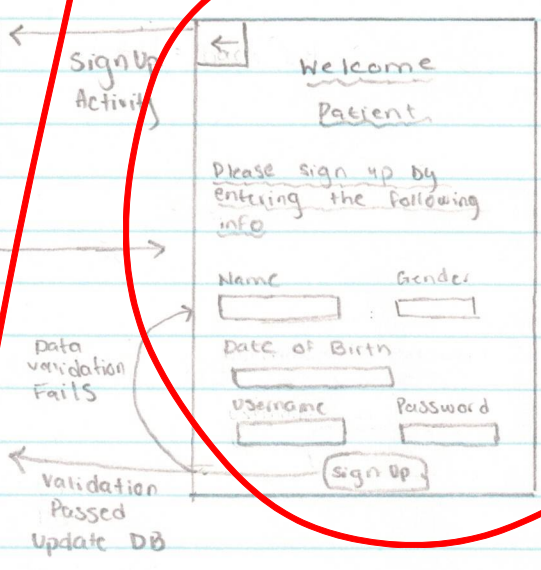 Sign Up
Activity
Welcome
Patient
Please sign up by
entering the following
info
Name
Gender
Date of Birth
Username
Password
Sign Up
Data
validation
Fails
Validation
Passed
Update DB